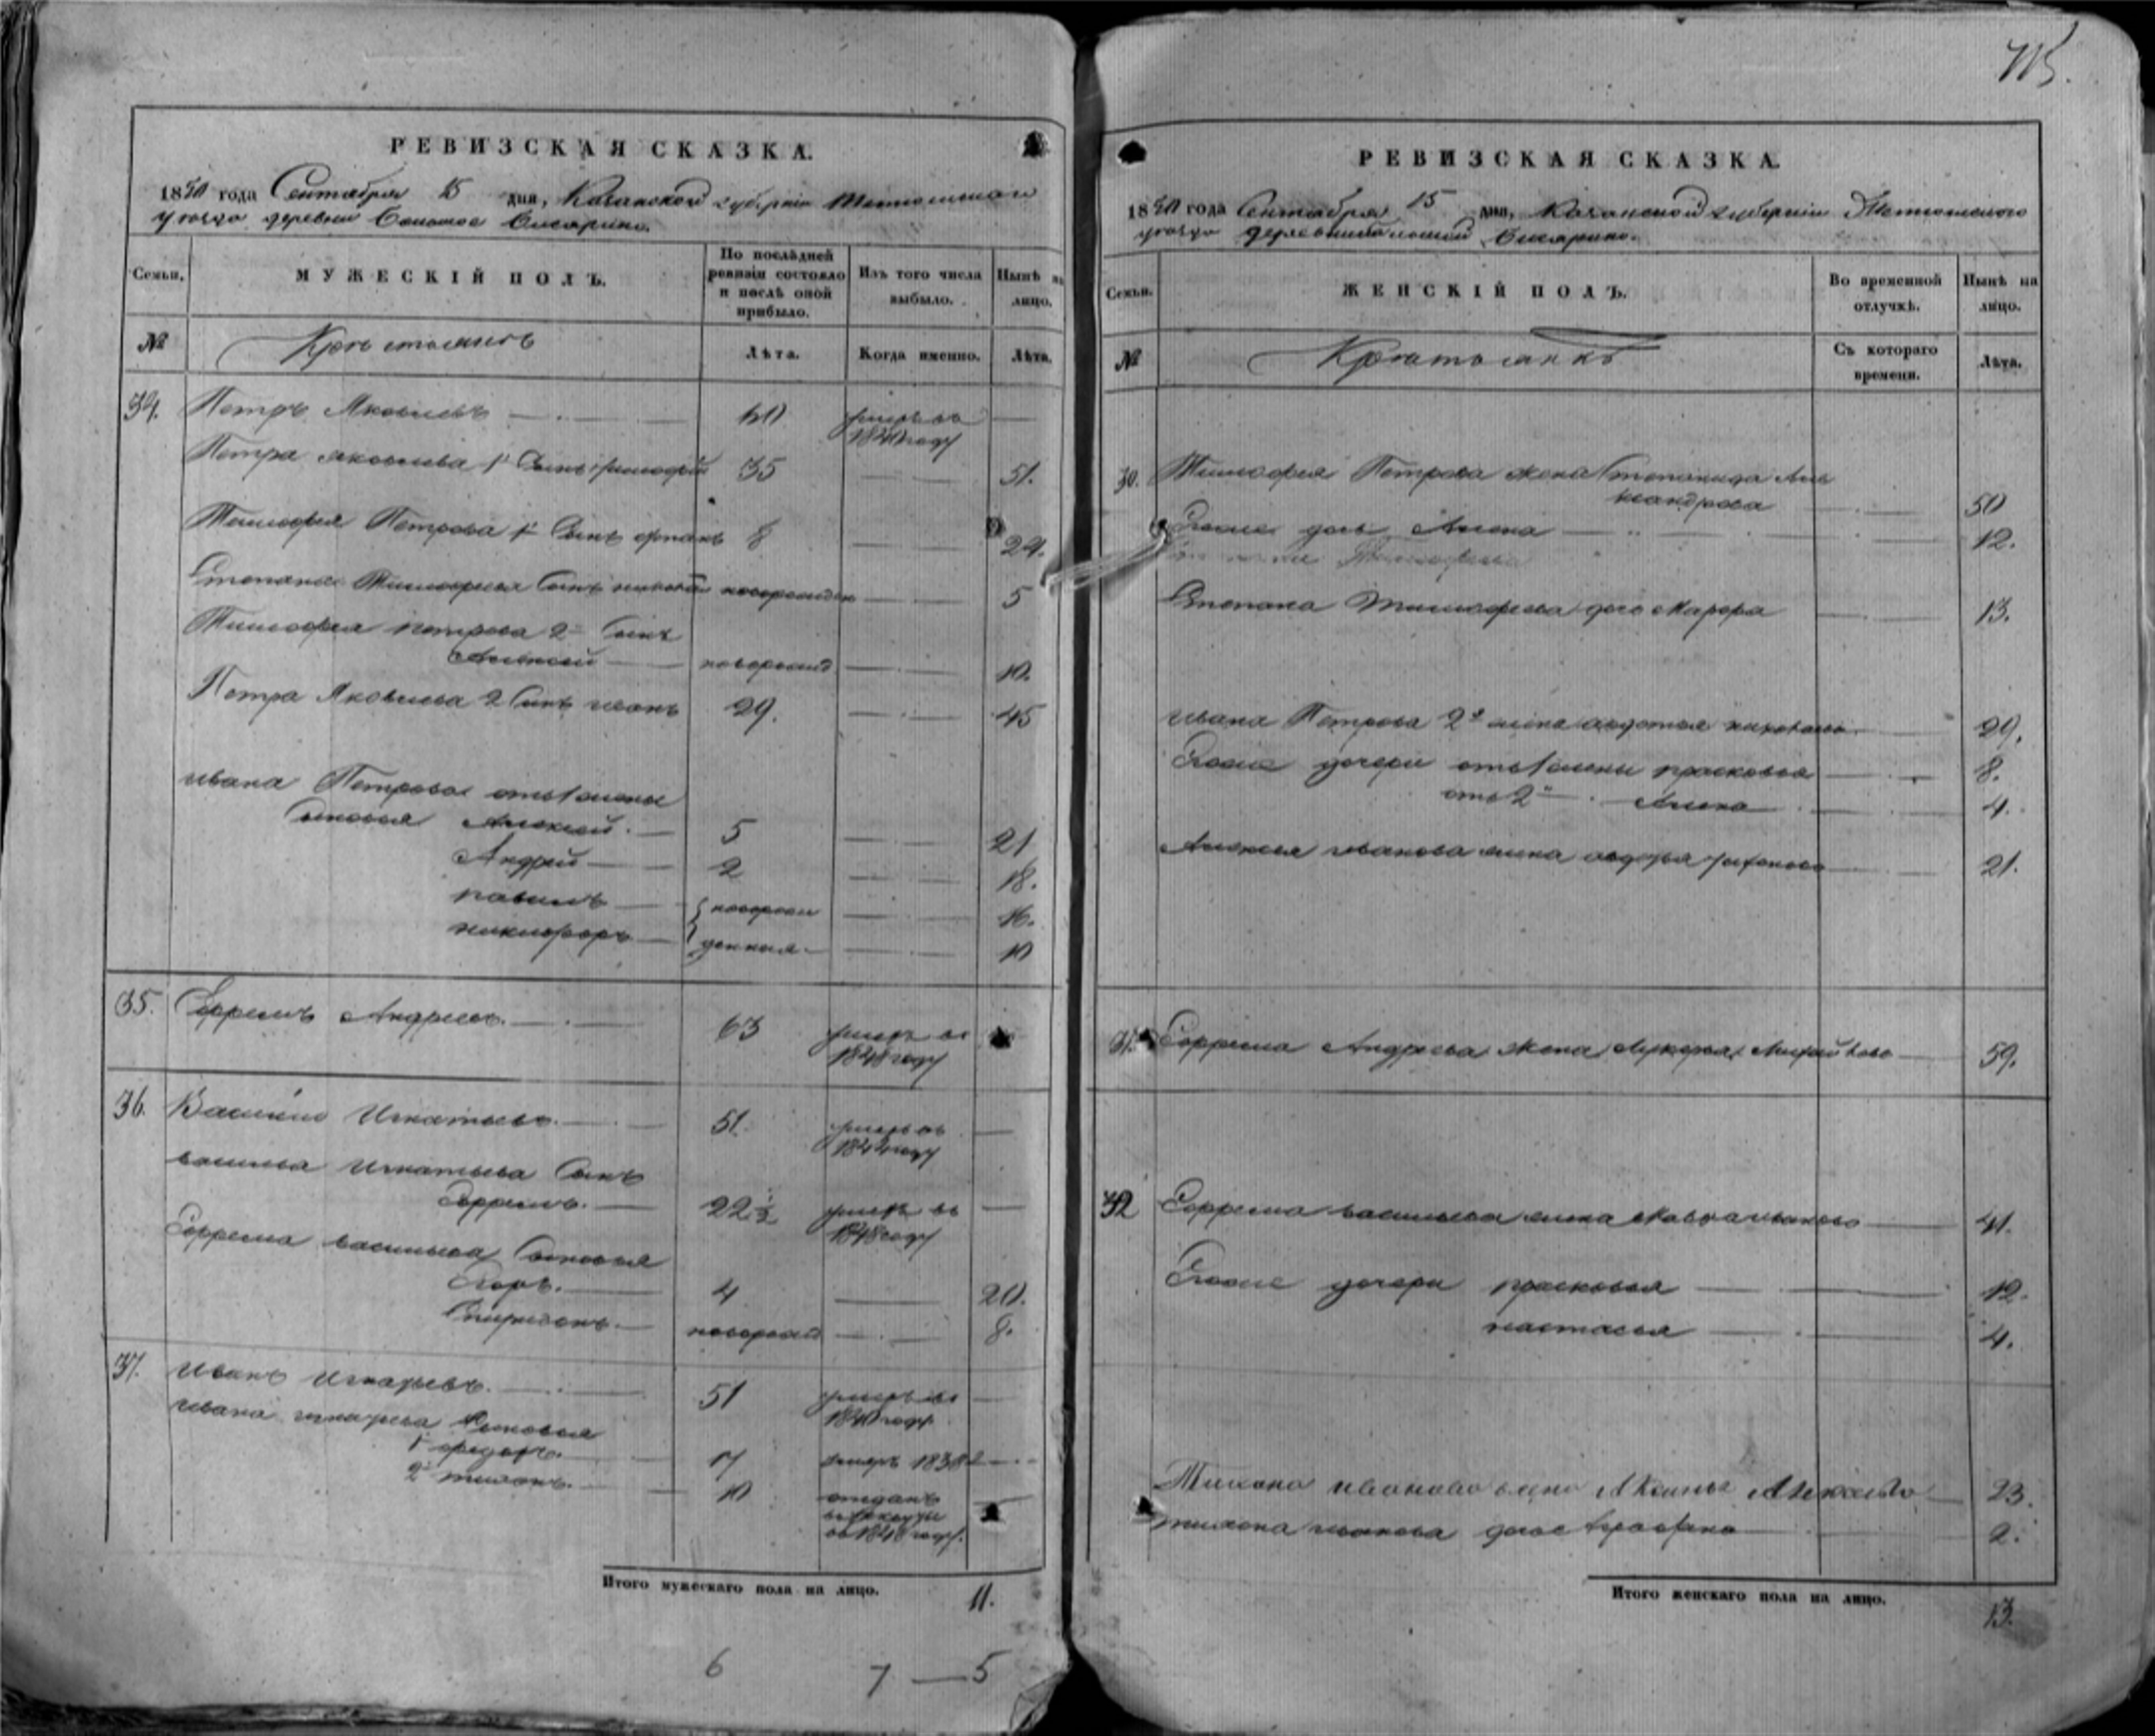 715.
РЕВИЗСКАЯ СКАЗКА.
1850 года Сентября 15 дня, Казанской губернии Тетюшскаго
уезда деревни
Семьи.
МУЖЕСКІЙ ПОЛЪ.
По послѣдней ревизіи состояло и послѣ оной прибыло.
Изъ того числа выбыло.
Нынѣ на лицо.
№
Крестьянъ
Лѣта.
Когда именно.
Лѣта.
34. Петръ Яковлевъ 60 умеръ въ
1840 году
Петра Яковлева 1й Сынъ тимофей 35 51.
Тимофея Петрова 1й Сынъ 8 24.
Степана Тимофеева Сынъ новорожден 5
Тимофея петрова 2й Сынъ
Алексей новорожд 10.
Петра Яковлева 2 Сынъ иванъ 29. 45
ивана Петрова от 1 жены
Сыновья Алексей 5 21
Андрей 2 18.
павелъ новорож 16.
никифоръ денныя 10
35. Ефремъ Андреевъ. 63 умеръ во
1848 году
36. Василий Игнатьевъ. 51. умеръ въ
1844 году
василья Игнатьева Сынъ
Ефремъ. 22 1/2 умеръ въ
1848 году
Ефрема васильева Сыновья
Егоръ. 4 20.
Спиридонъ. новорожд 8.
37. Иванъ Игнатьевъ. 51 умеръ во
1840 году
ивана игнатьева Сыновья
1й федоръ. 17 умеръ 1838
2й тихонъ. 10 отданъ
в рекруты
въ 1848 году.
Итого мужескаго пола на лицо. 11.
6 7 — 5
РЕВИЗСКАЯ СКАЗКА.
1850 года Сентября 15 дня, Казанской губернии Тетюшскаго
уезда деревни
Семьи.
ЖЕНСКІЙ ПОЛЪ.
Во временной отлучкѣ.
Нынѣ на лицо.
№
Крестьянкъ
Съ котораго времени.
Лѣта.
30. Тимофея Петрова жена Степанида Алек
сандрова 50
Егоже дочь Алена 12.
Степана Тимофеева дочь Марфа 13.
ивана Петрова 2я жена авдотья 29.
Егоже дочери от 1 жены прасковья 8.
отъ 2й Алена 4.
Алексея иванова жена 21.
31. Ефрема Андреева жена Лукерья Михайлова 59.
32 Ефрема васильева жена Мавра иванова 41.
Егоже дочери прасковья 12.
настасья 4.
Тихона иванова жена Аксинья Алексеева 23.
тихона иванова дочь 2.
Итого женскаго пола на лицо. 13.